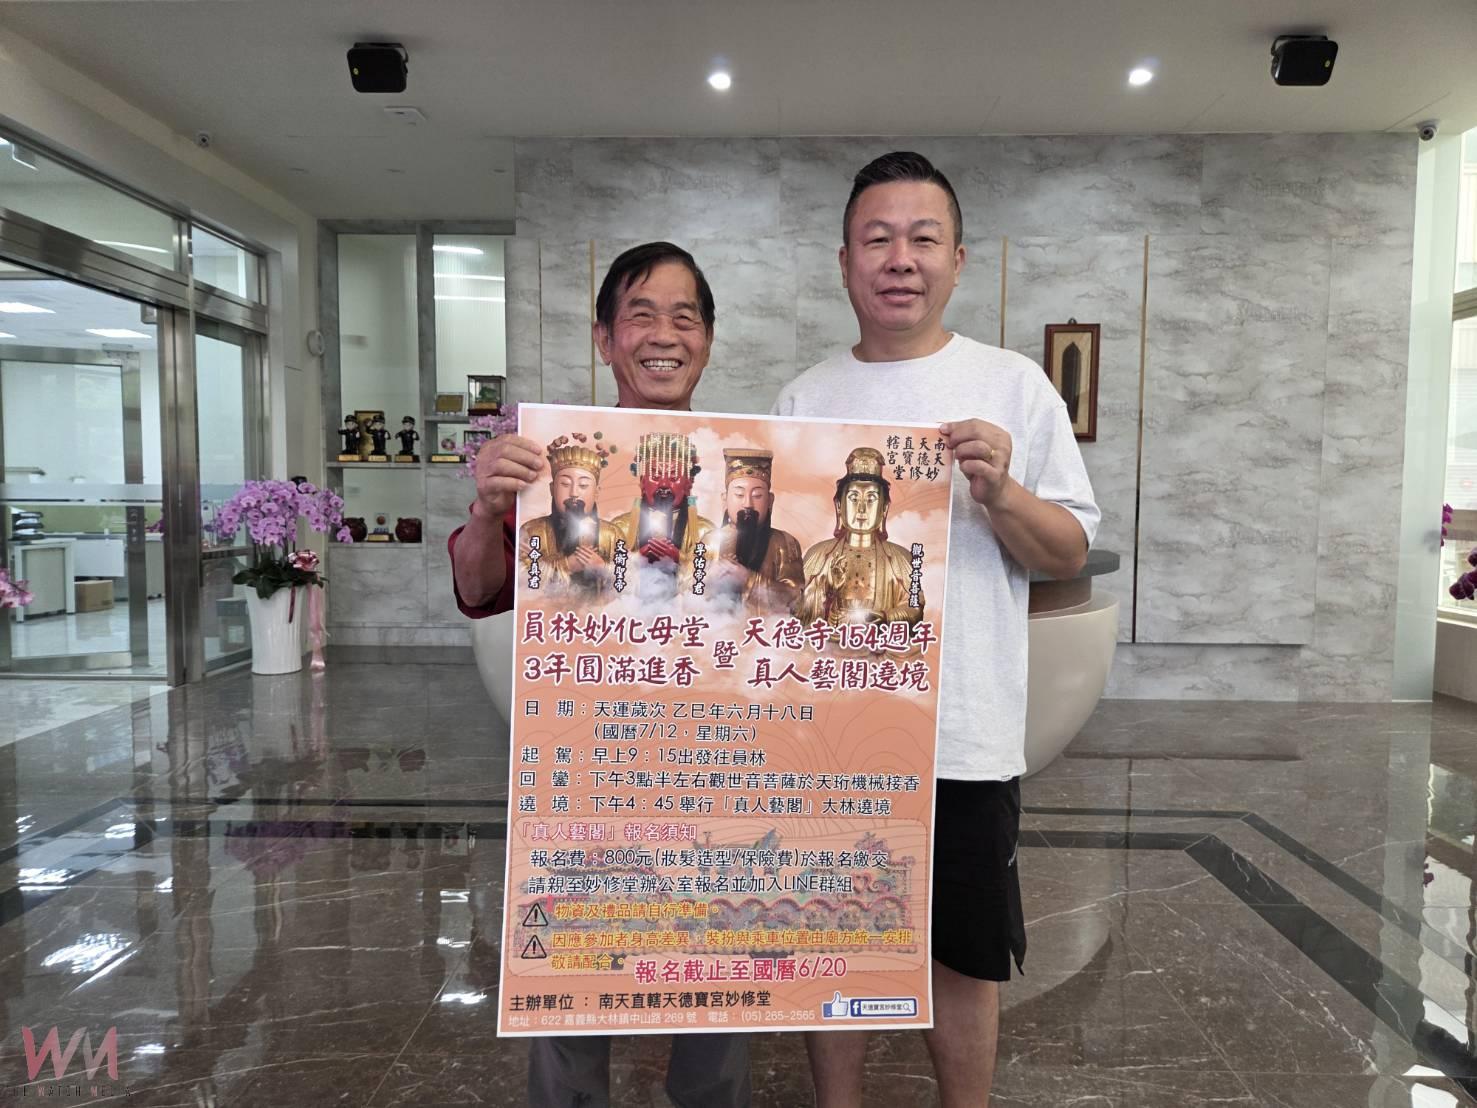 南天直轄
天德寶宮
妙修堂
司命真君
文衡聖帝
孚佑帝君
觀世音菩薩
員林妙化母堂
3年圓滿進香
暨
天德寺154週年
真人藝閣遶境
日 期：天運歲次 乙巳年六月十八日
(國曆7/12，星期六)
起 駕：早上9：15出發往員林
回 鑾：下午3點半左右觀世音菩薩於天珩機械接香
遶 境：下午4：45 舉行「真人藝閣」大林遶境
「真人藝閣」報名須知
報名費：800元(妝髮造型/保險費)於報名繳交
請親至妙修堂辦公室報名並加入LINE群組
物資及禮品請自行準備。
因應參加者身高差異，裝扮與乘車位置由廟方統一安排，
敬請配合。
報名截止至國曆6/20
主辦單位 ： 南天直轄天德寶宮妙修堂
地址：622 嘉義縣大林鎮中山路 269 號 電話：(05) 265-2565
天德寶宮妙修堂
WM
THE WATCH MEDIA